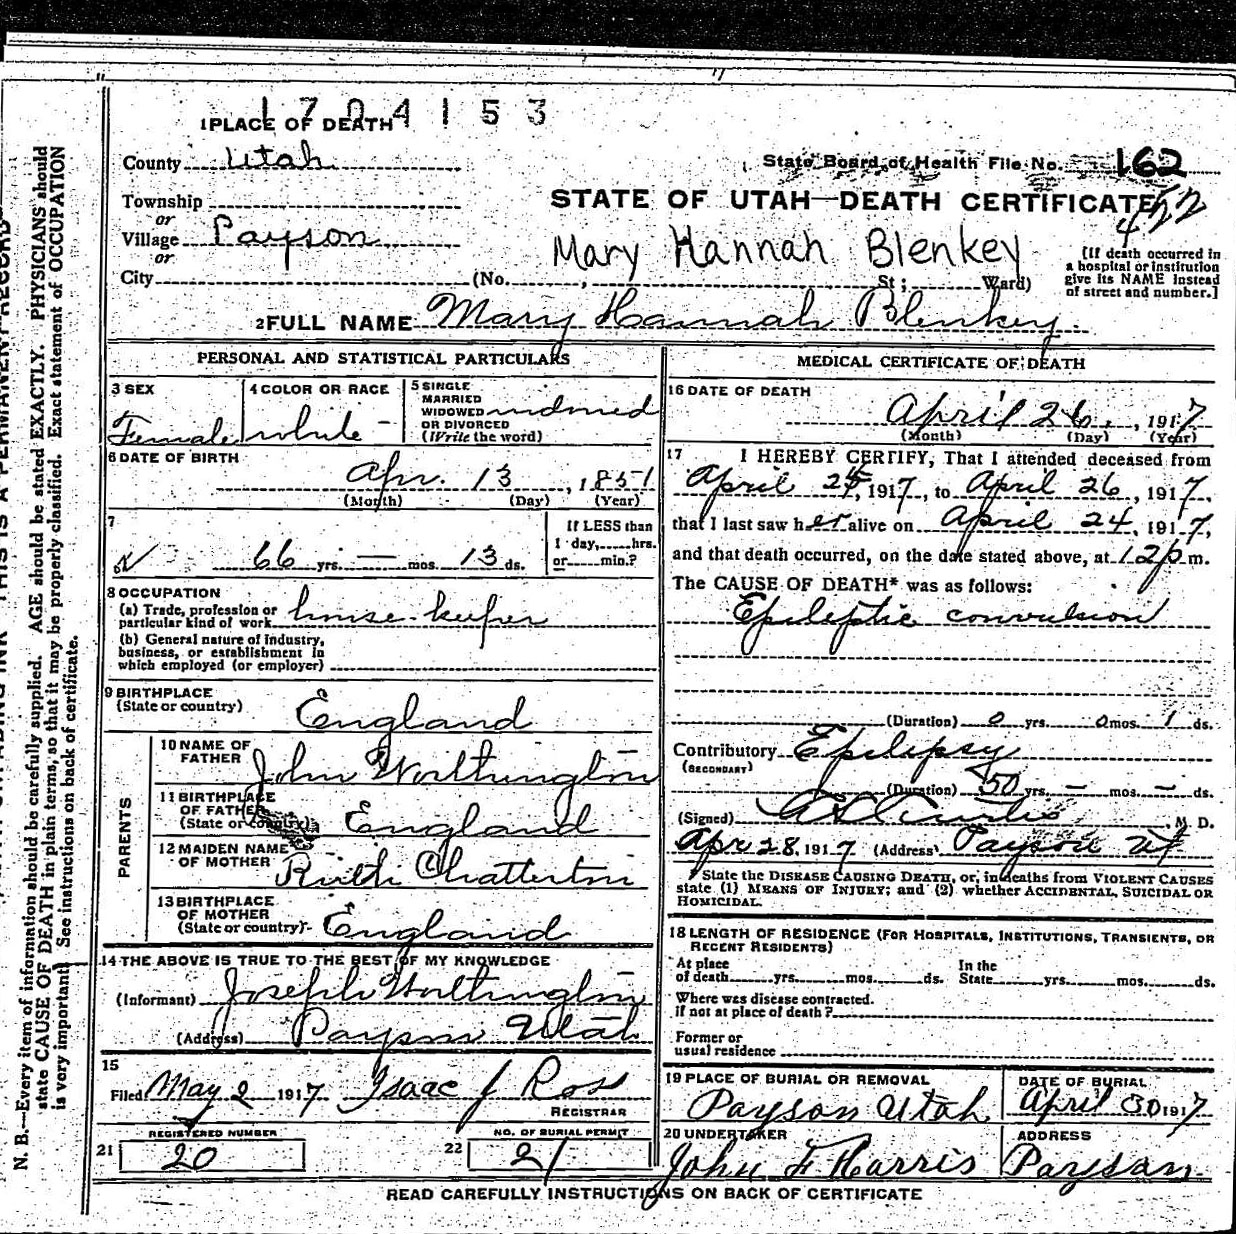 1704153
1 PLACE OF DEATH
County Utah
State Board of Health File No. 162
Township
or
STATE OF UTAH—DEATH CERTIFICATE
Village Payson
or
Mary Hannah Blenkey
City (No. , St; Ward)
[If death occurred in
a hospital or institution
give its NAME instead
of street and number.]
2 FULL NAME Mary Hannah Blenkey
PERSONAL AND STATISTICAL PARTICULARS
3 SEX
Female
4 COLOR OR RACE
white
5 SINGLE
MARRIED
WIDOWED widowed
OR DIVORCED
(Write the word)
6 DATE OF BIRTH
Apr. 13, 1851
(Month) (Day) (Year)
7
66 yrs. — mos. 13 ds.
If LESS than
1 day, hrs.
or min.?
8 OCCUPATION
(a) Trade, profession or
particular kind of work house-keeper
(b) General nature of industry,
business, or establishment in
which employed (or employer)
9 BIRTHPLACE
(State or country) England
PARENTS
10 NAME OF
FATHER John Worthington
11 BIRTHPLACE
OF FATHER
(State or country) England
12 MAIDEN NAME
OF MOTHER Ruth Chatterton
13 BIRTHPLACE
OF MOTHER
(State or country) England
14 THE ABOVE IS TRUE TO THE BEST OF MY KNOWLEDGE
(Informant) Joseph Worthington
(Address) Payson Utah
15
Filed May 2 1917 Isaac J Ross
REGISTRAR
REGISTERED NUMBER
21 20
NO. OF BURIAL PERMIT
22 21
MEDICAL CERTIFICATE OF DEATH
16 DATE OF DEATH
April 26, 1917
(Month) (Day) (Year)
17 I HEREBY CERTIFY, That I attended deceased from
April 25, 1917, to April 26, 1917,
that I last saw her alive on April 24, 1917,
and that death occurred, on the date stated above, at 12 p m.
The CAUSE OF DEATH* was as follows:
Epileptic convulsion
(Duration) 0 yrs. 0 mos. 1 ds.
Contributory Epilepsy
(SECONDARY)
(Duration) 50 yrs. — mos. — ds.
(Signed) Curtis, M. D.
Apr 28, 1917 (Address) Payson Ut
*State the DISEASE CAUSING DEATH, or, in deaths from VIOLENT CAUSES
state (1) MEANS OF INJURY; and (2) whether ACCIDENTAL, SUICIDAL OR
HOMICIDAL.
18 LENGTH OF RESIDENCE (FOR HOSPITALS, INSTITUTIONS, TRANSIENTS, OR
RECENT RESIDENTS)
At place
of death yrs. mos. ds.
In the
State yrs. mos. ds.
Where was disease contracted.
if not at place of death?
Former or
usual residence
19 PLACE OF BURIAL OR REMOVAL
Payson Utah
DATE OF BURIAL
April 30 1917
20 UNDERTAKER
John F Harris
ADDRESS
Payson
READ CAREFULLY INSTRUCTIONS ON BACK OF CERTIFICATE
N. B.—Every item of information should be carefully supplied. AGE should be stated EXACTLY. PHYSICIANS should
state CAUSE OF DEATH in plain terms, so that it may be properly classified. Exact statement of OCCUPATION
is very important. See instructions on back of certificate.